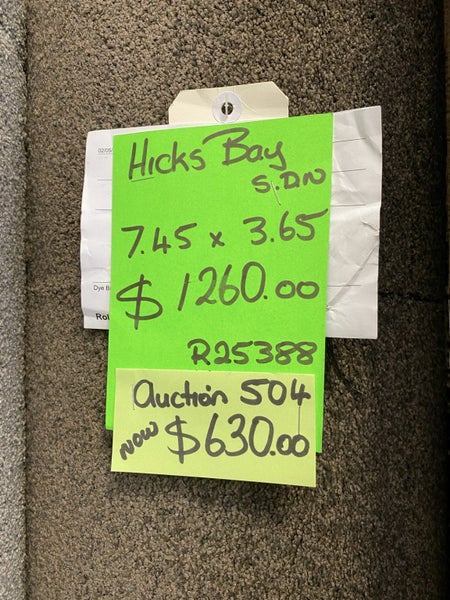 02/05
Hicks Bay
S.DN
7.45 x 3.65
$1260.00
Dye B
Rol
R25388
Auction 504
NOW $630.00